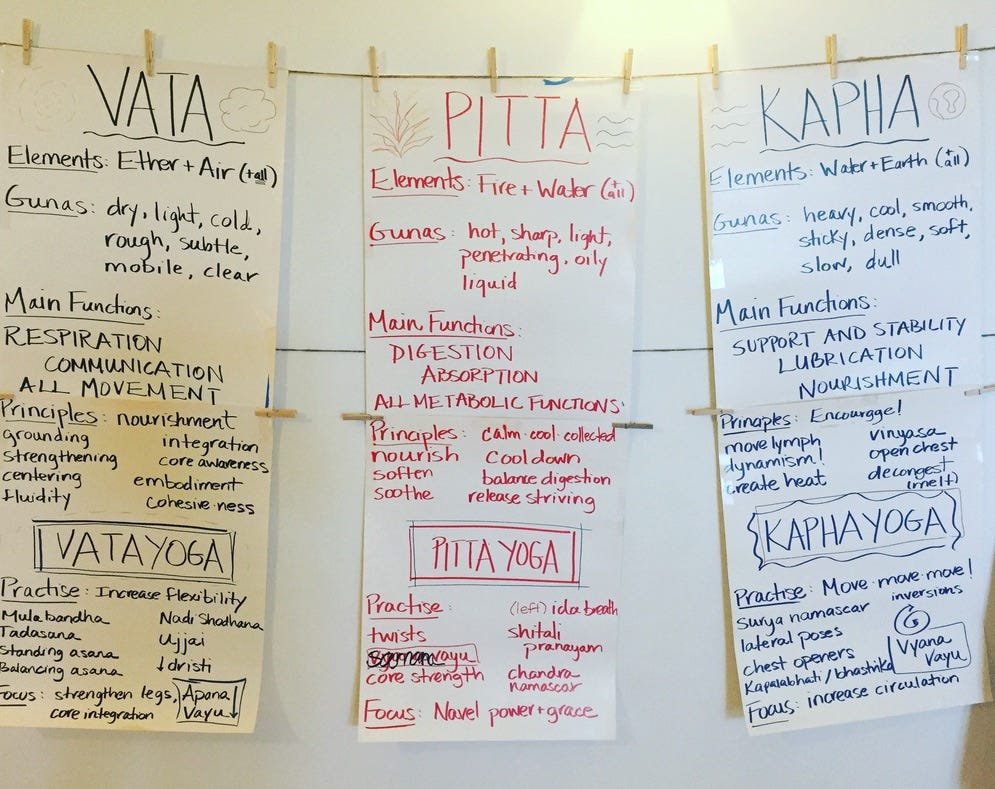 VATA
Elements: Ether + Air (+all)
Gunas: dry, light, cold,
rough, subtle,
mobile, clear
Main Functions:
RESPIRATION
COMMUNICATION
ALL MOVEMENT
Principles: nourishment
grounding integration
strengthening core awareness
centering embodiment
fluidity cohesive·ness
VATA YOGA
Practise: Increase flexibility
Mula bandha Nadi Shodhana
Tadasana Ujjai
Standing asana ↓dristi
Balancing asana
Focus: strengthen legs, Apana
core integration Vayu ↓
PITTA
Elements: Fire + Water (+all)
Gunas: hot, sharp, light,
penetrating, oily
liquid
Main Functions:
DIGESTION
ABSORPTION
ALL METABOLIC FUNCTIONS
Principles: calm·cool·collected
nourish cool down
soften balance digestion
soothe release striving
PITTA YOGA
Practise: (left) ida breath
twists shitali
pranayam
vayu
core strength chandra
namascar
Focus: Navel power + grace
KAPHA
Elements: Water + Earth (+all)
Gunas: heavy, cool, smooth,
sticky, dense, soft,
slow, dull
Main Functions:
SUPPORT AND STABILITY
LUBRICATION
NOURISHMENT
Principles: Encourage!
move lymph vinyasa
dynamism! open chest
create heat decongest
(melt)
KAPHA YOGA
Practise: Move·move·move!
surya namascar inversions
lateral poses
chest openers Vyana
Kapalabhati / bhastrika Vayu
Focus: increase circulation